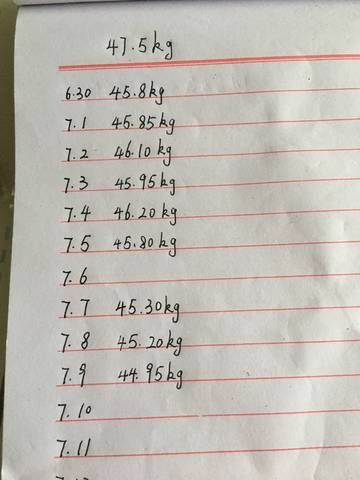 47.5kg
6.30 45.8kg
7.1 45.85kg
7.2 46.10kg
7.3 45.95kg
7.4 46.20kg
7.5 45.80kg
7.6
7.7 45.30kg
7.8 45.20kg
7.9 44.95kg
7.10
7.11